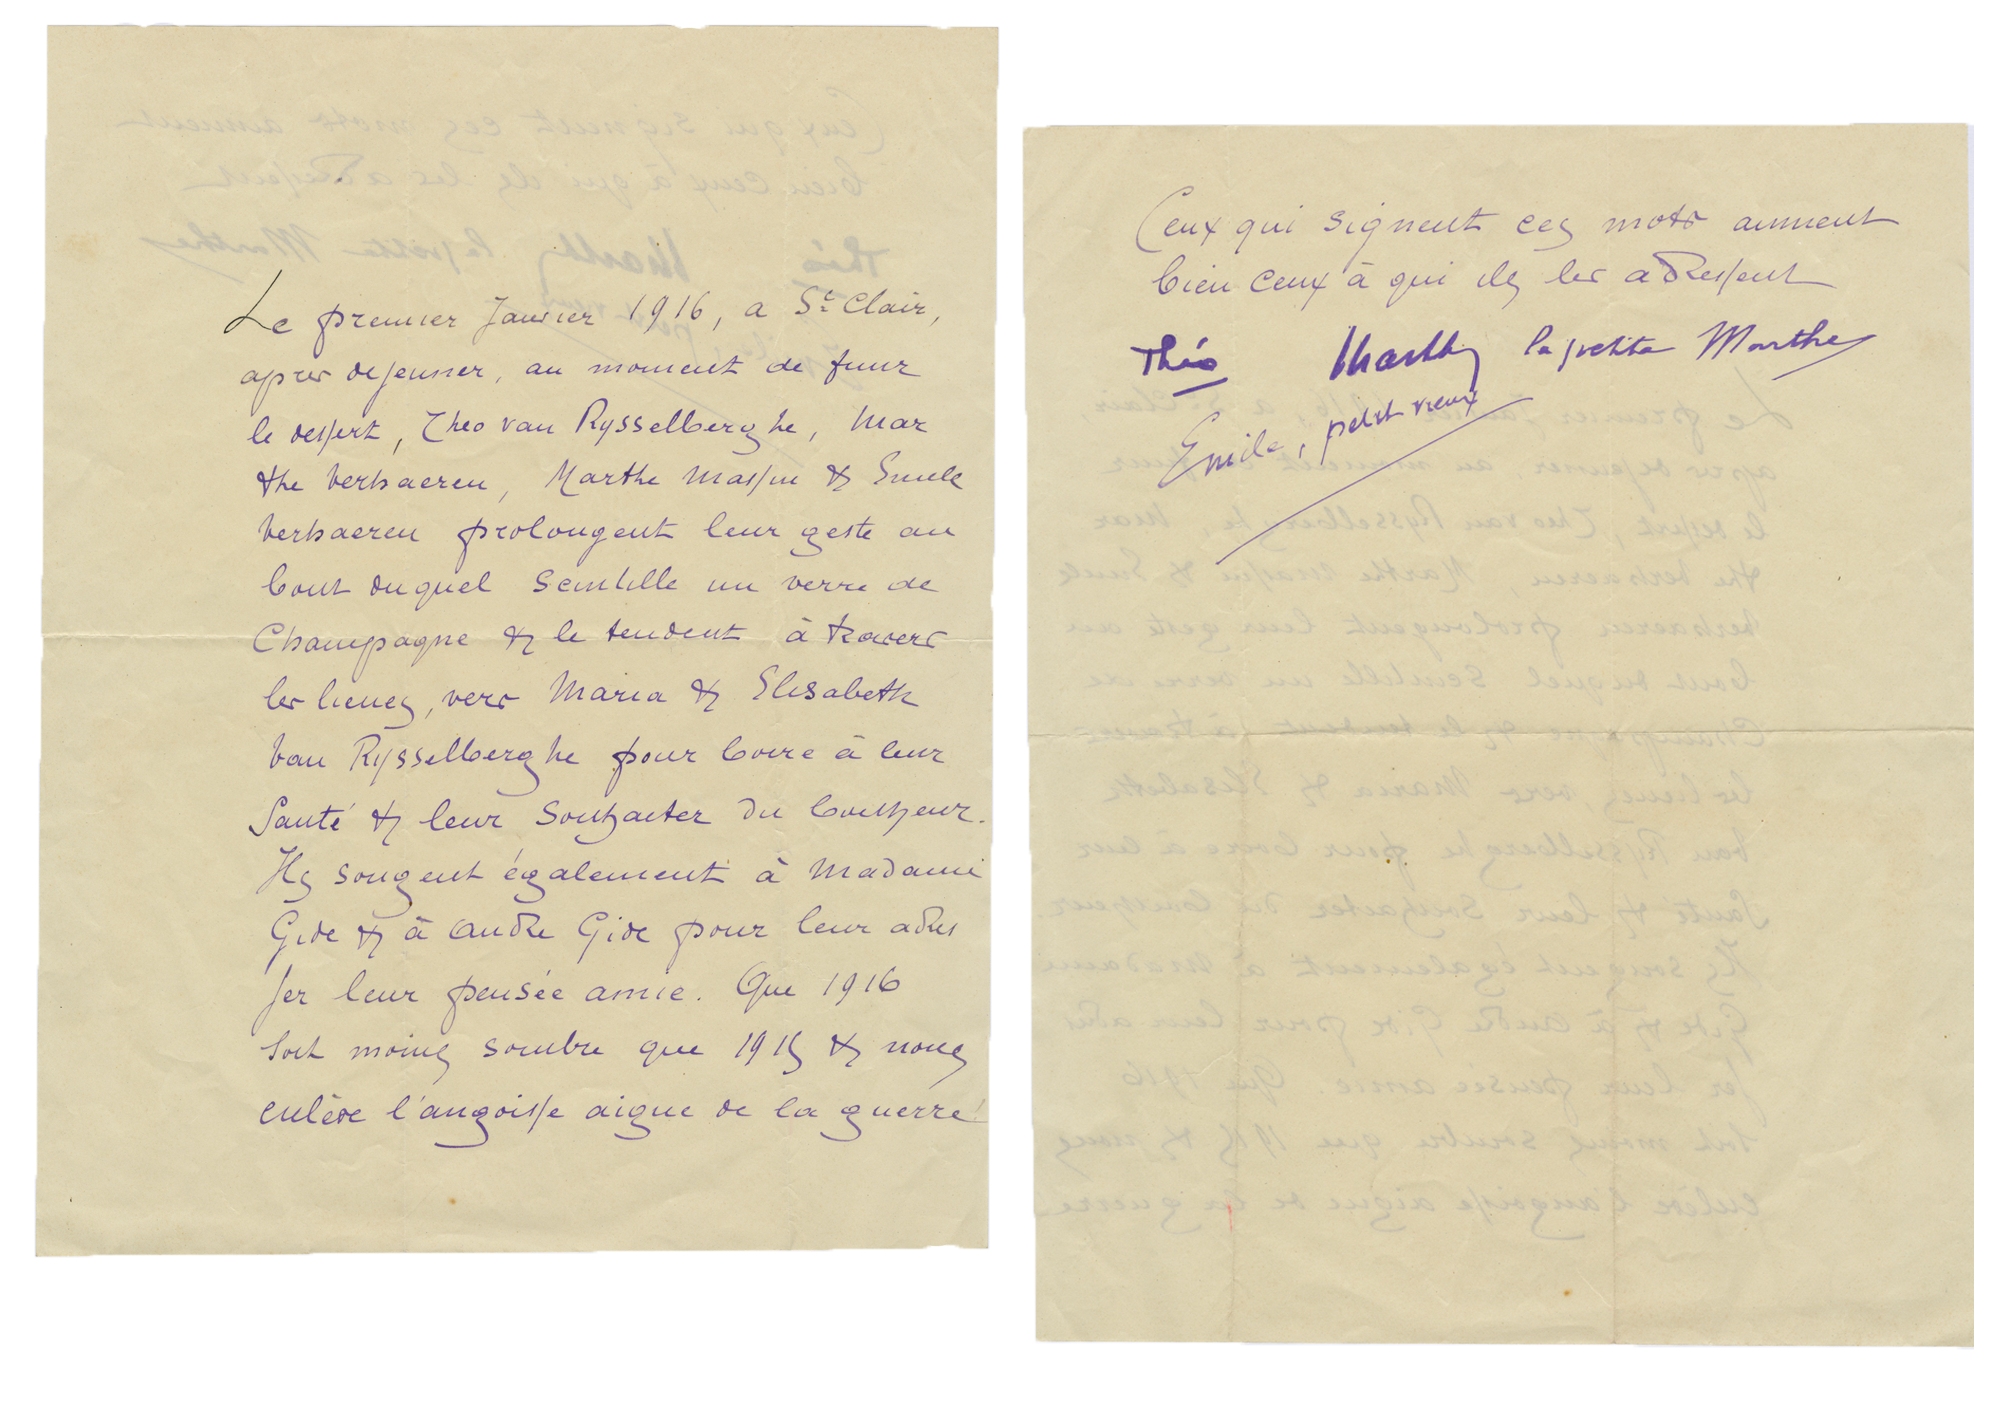 Le premier Janvier 1916, a St Clair,
apres dejeuner, au moment de finir
le dessert, Theo van Rysselberghe, Mar
the Verhaeren, Marthe Massin & Emile
Verhaeren prolongent leur geste au
bout duquel scintille un verre de
Champagne & le tendent à travers
les lieues, vers Maria & Elisabeth
Van Rysselberghe pour boire à leur
Santé & leur souhaiter du bonheur.
Ils songent également à Madame
Gide & à André Gide pour leur adres
ser leur pensée amie. Que 1916
soit moins sombre que 1915 & nous
enlève l'angoisse aigue de la guerre!
Ceux qui signent ces mots aiment
bien ceux à qui ils les adressent
Théo Marthe la petite Marthe
Emile, petit vieux